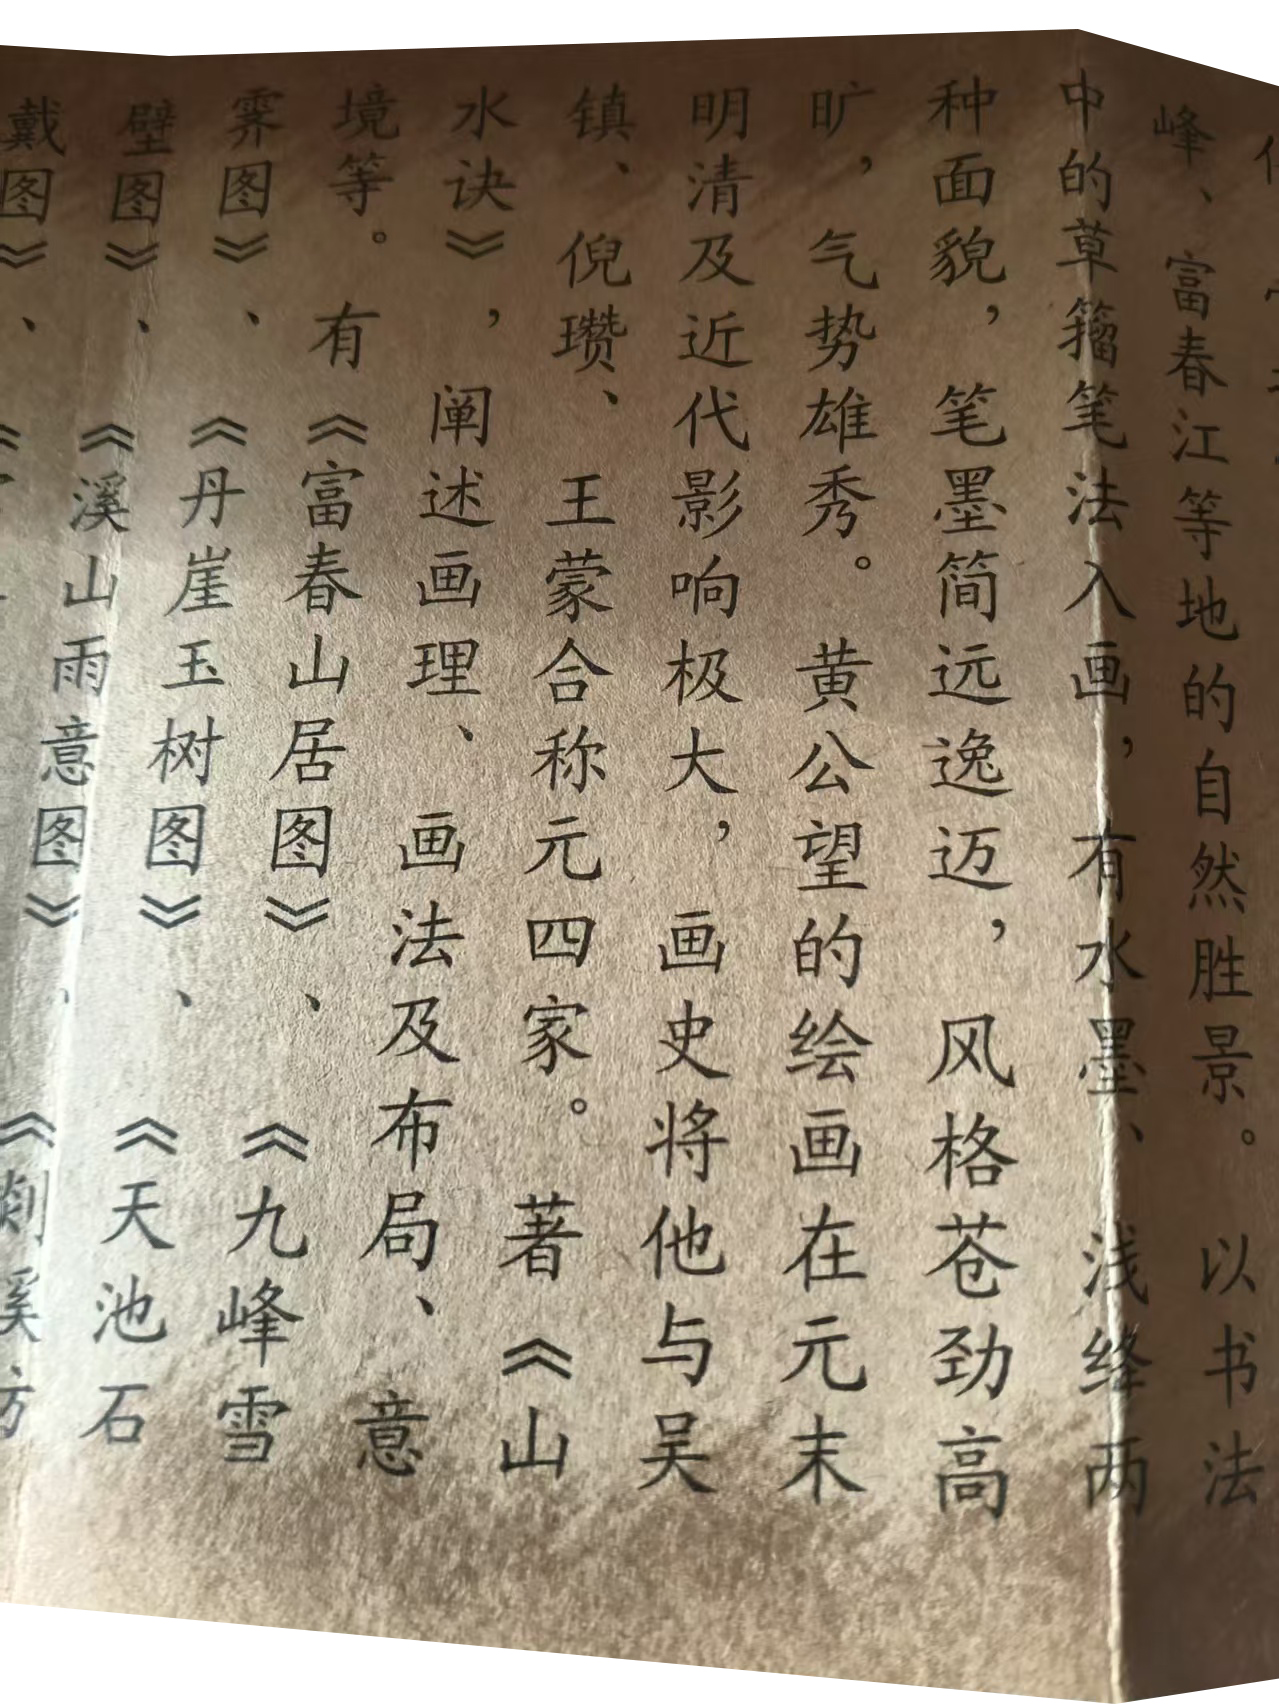 峰、富春江等地的自然胜景。以书法
中的草籀笔法入画，有水墨、浅绛两
种面貌，笔墨简远逸迈，风格苍劲高
旷，气势雄秀。黄公望的绘画在元末
明清及近代影响极大，画史将他与吴
镇、倪瓒、王蒙合称元四家。著《山
水诀》，阐述画理、画法及布局、意
境等。有《富春山居图》、《九峰雪
霁图》、《丹崖玉树图》、《天池石
壁图》、《溪山雨意图》、《剡溪访
戴图》、